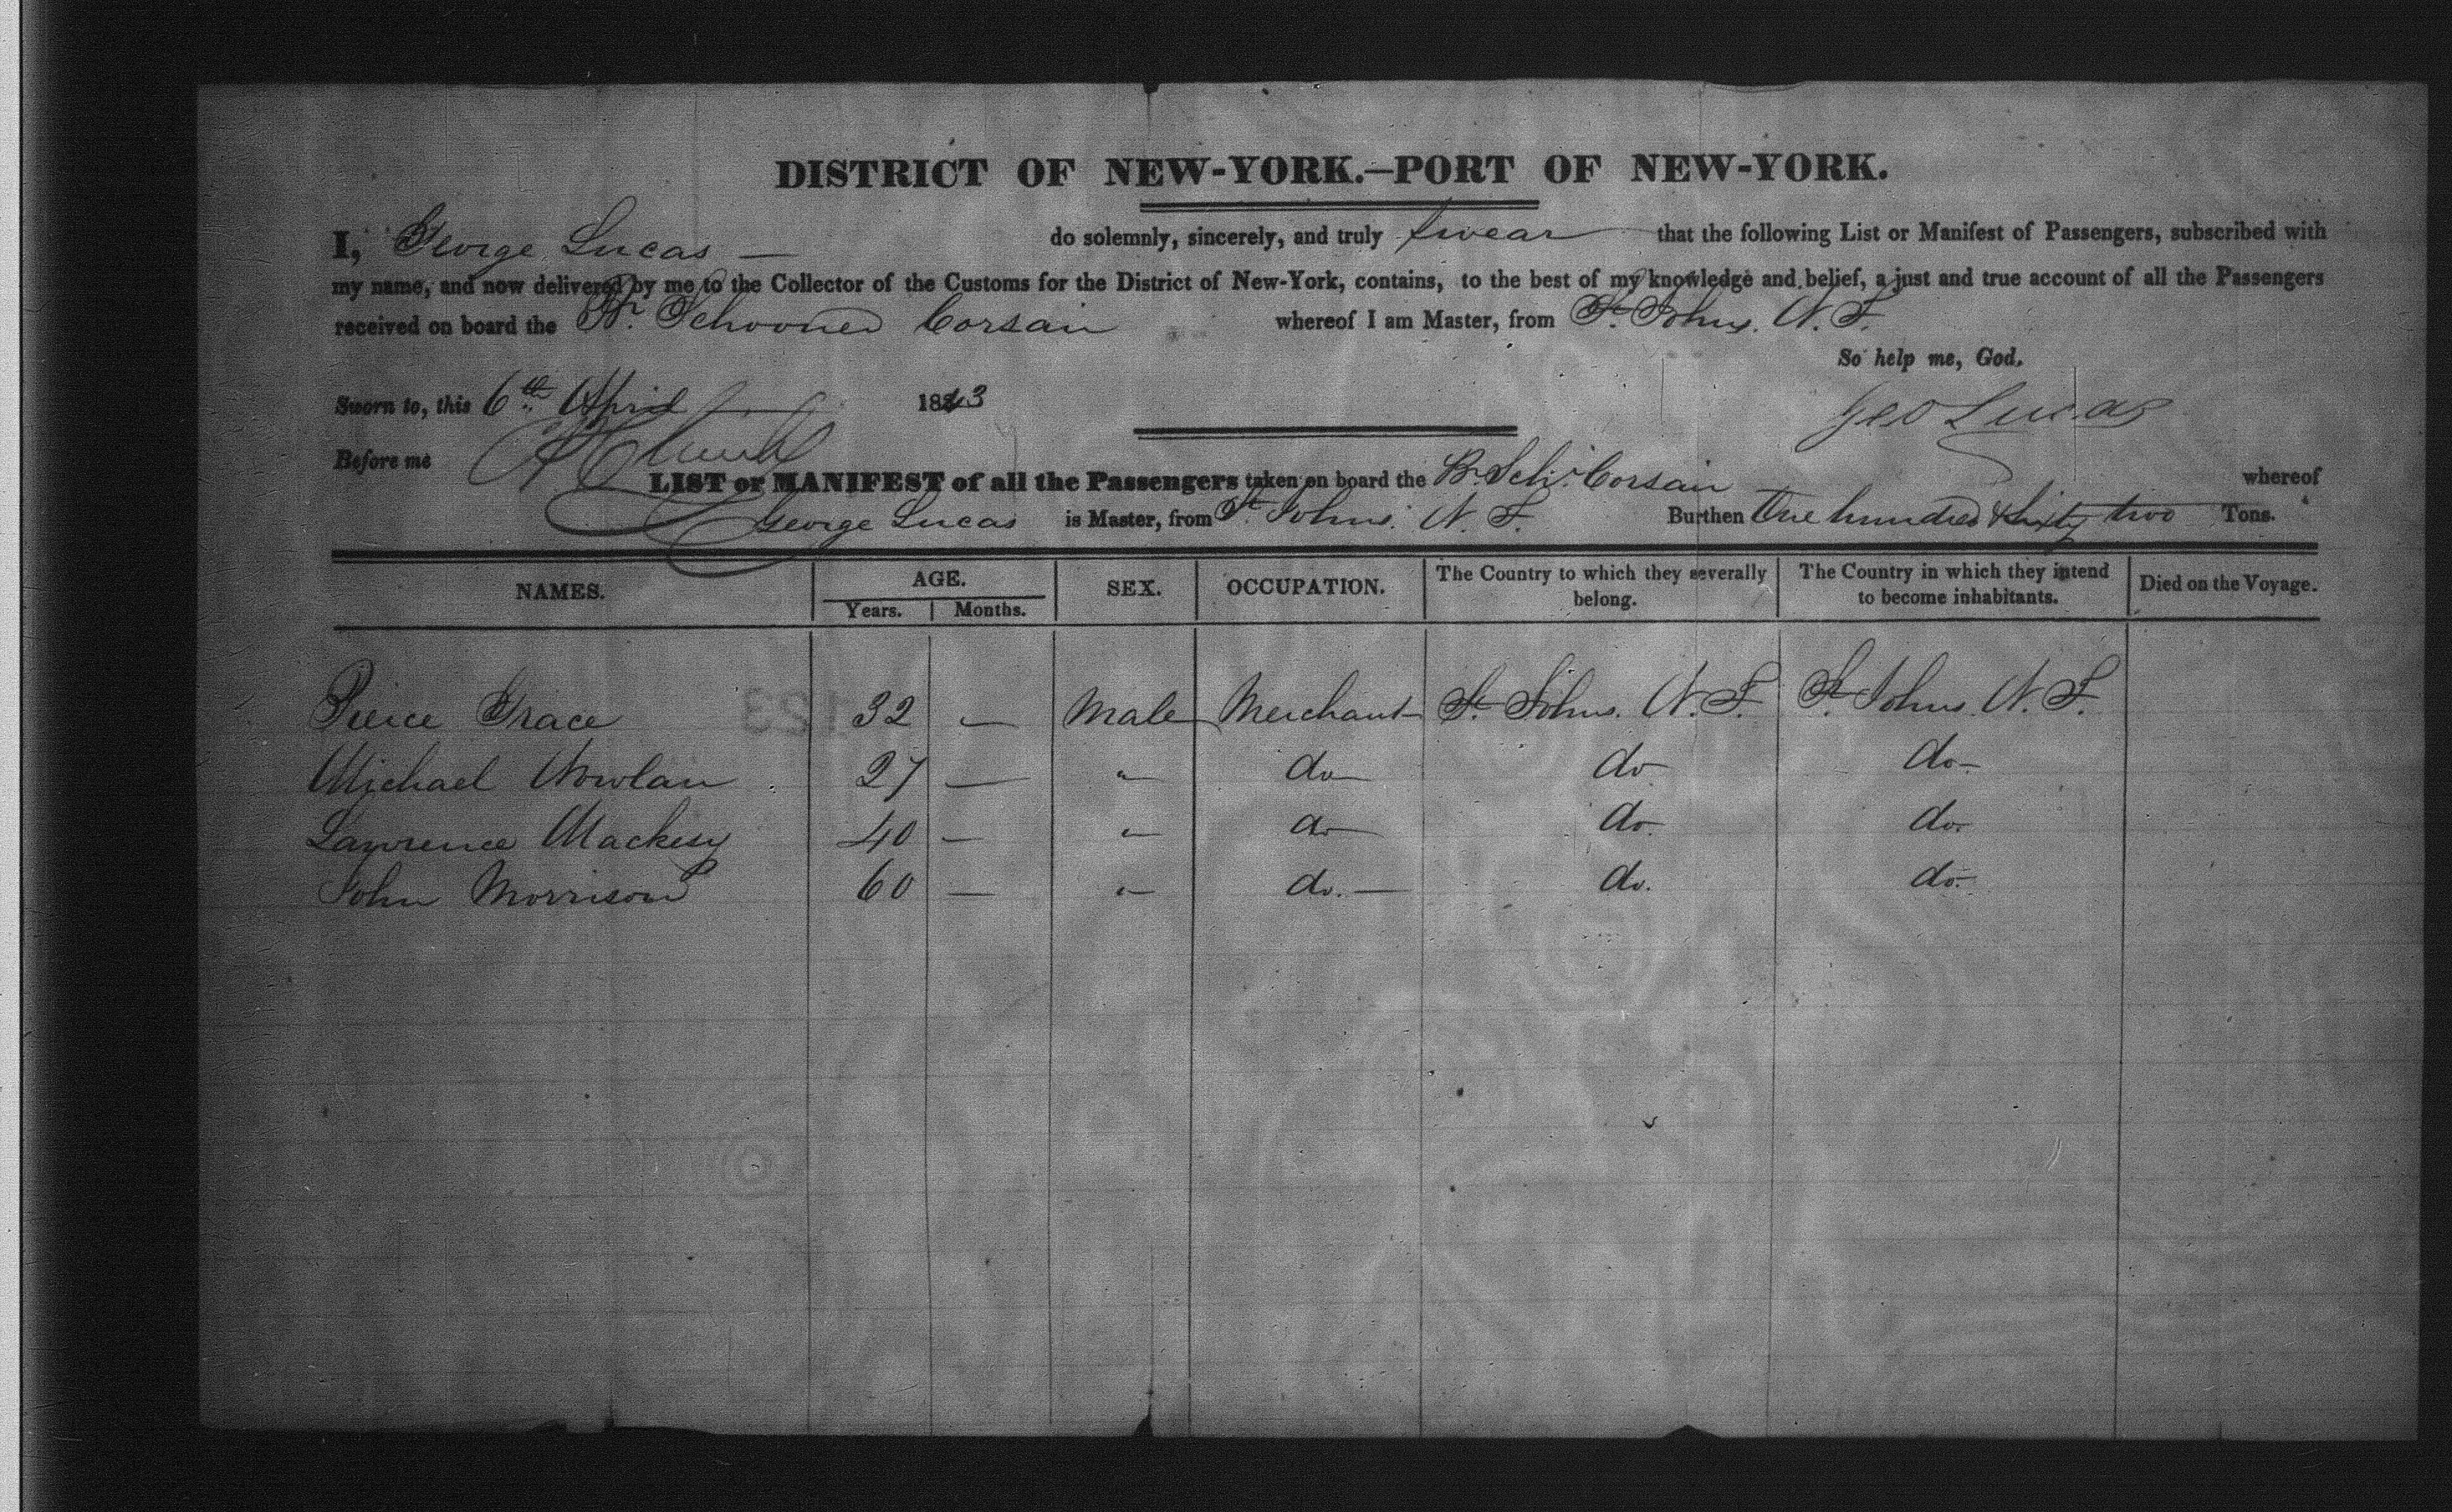 DISTRICT OF NEW-YORK.—PORT OF NEW-YORK.
I, George Lucas — do solemnly, sincerely, and truly swear that the following List or Manifest of Passengers, subscribed with
my name, and now delivered by me to the Collector of the Customs for the District of New-York, contains, to the best of my knowledge and belief, a just and true account of all the Passengers
received on board the Br. Schooner Corsair whereof I am Master, from St. Johns. N. F.
So help me, God.
Sworn to, this 6th April 1843
Geo Lucas
Before me
LIST or MANIFEST of all the Passengers taken on board the Br. Sch. Corsair whereof
George Lucas is Master, from St. Johns. N. F. Burthen One hundred & sixty two Tons.
NAMES. AGE. SEX. OCCUPATION. The Country to which they severally belong. The Country in which they intend to become inhabitants. Died on the Voyage.
Years. Months.
Pierce Grace 32 — Male Merchant St. Johns. N. F. St. Johns. N. F.
Michael Nowlan 27 — " do do do
Lawrence Mackesy 40 — " do do. do.
John Morrison 60 — " do. — do. do.
123